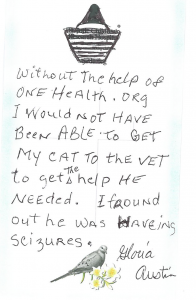 Without The help of
ONE Health. ORG
I Would Not HAVE
Been ABLE To GET
MY CAT TO THE VET
To get The help HE
NEEDED. I found
out he was HAVEING
SEIZURES.
Gloria
Austin